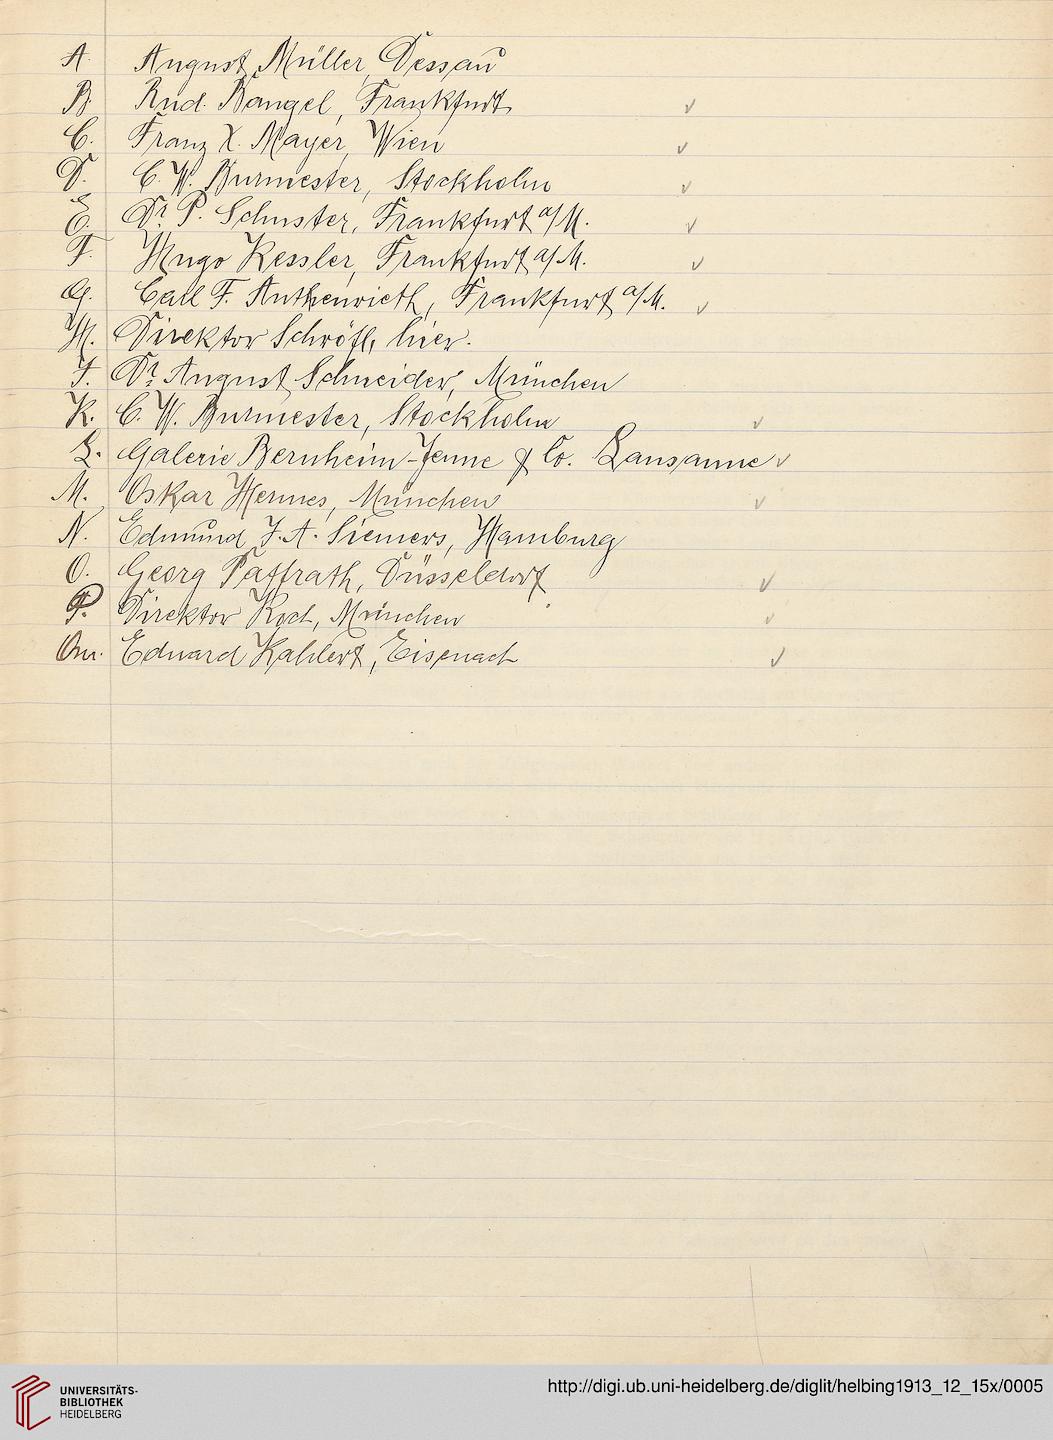 A. August Müller, Dessau
B. Rud. Bangel, Frankfurt ✓
C. Franz X. Mayer, Wien ✓
D. C. W. Burmester, Stockholm ✓
E. Dr. P. Schuster, Frankfurt a/M. ✓
F. Hugo Kessler, Frankfurt a/M. ✓
G. Carl F. Authenrieth, Frankfurt a/M. ✓
H. Direktor Schröfl, hier.
J. Dr. August Schneider, München
K. C. W. Burmester, Stockholm ✓
L. Galerie Bernheim-Jeune & Co. Lausanne ✓
M. Oskar Hermes, München ✓
N. Edmund J. A. Siemers, Hamburg
O. Georg Paffrath, Düsseldorf ✓
P. Direktor Koch, München ✓
Qu. Eduard Kahlert, Eisenach ✓
UNIVERSITÄTS-
BIBLIOTHEK
HEIDELBERG
http://digi.ub.uni-heidelberg.de/diglit/helbing1913_12_15x/0005